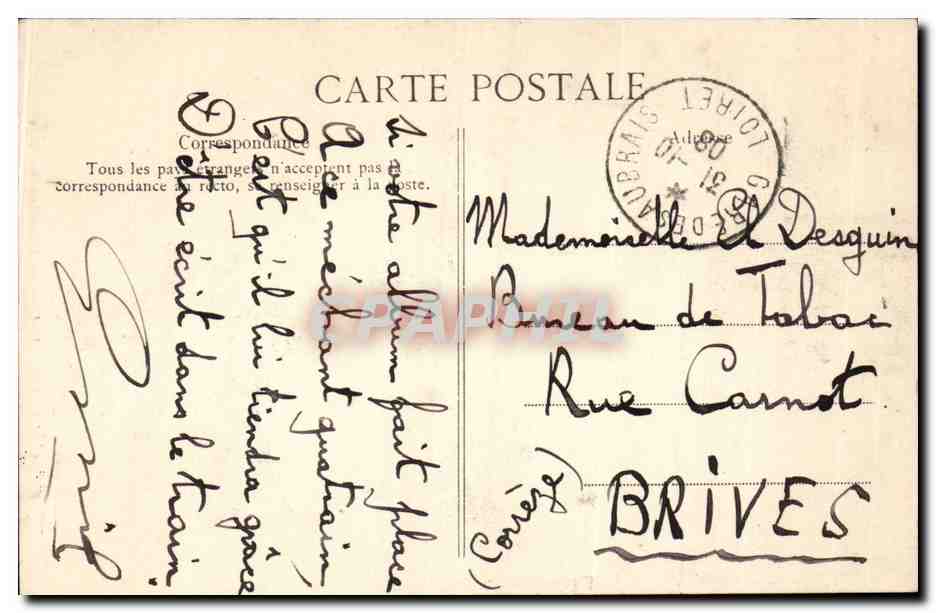 CARTE POSTALE
Correspondance
Tous les pays étrangers n'acceptent pas la
correspondance au recto, se renseigner à la poste.
Adresse
Si votre album fait place
A ce méchant quatrain,
C'est qu'il lui tiendra grâce
D'être écrit dans le train.
Mademoiselle Desguin
Bureau de Tabac
Rue Carnot
BRIVES
(Corrèze)
GARE DES AUBRAIS
LOIRET
31 -10
08
CPAPHIL